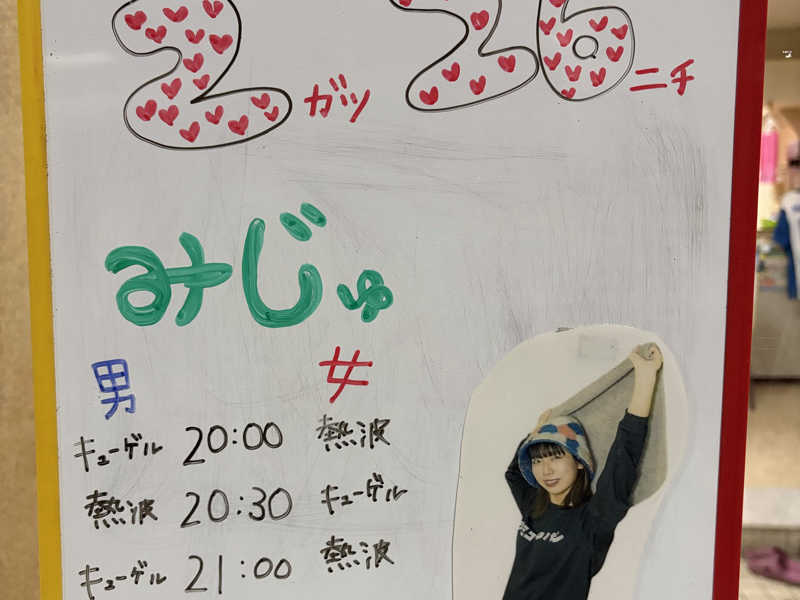 2ガツ 26ニチ
みじゅ
男 女
キューゲル 20:00 熱波
熱波 20:30 キューゲル
キューゲル 21:00 熱波